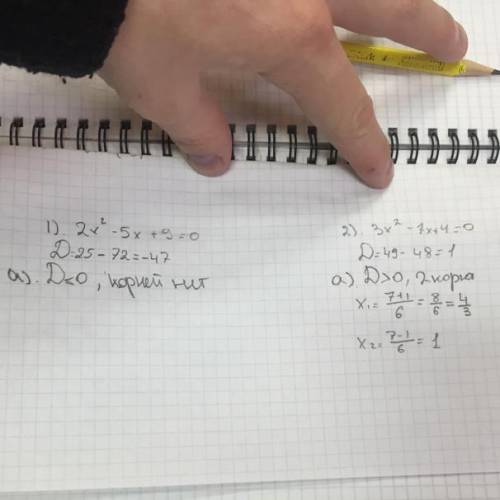 1) 2x² - 5x + 9 = 0
D = 25 - 72 = -47
а). D < 0, корней нет
2). 3x² - 7x + 4 = 0
D = 49 - 48 = 1
а). D > 0, 2 корня
x₁ = 7+1/6 = 8/6 = 4/3
x₂ = 7-1/6 = 1